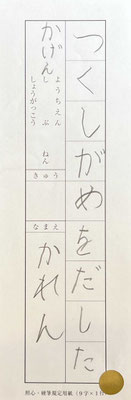 つくしがめをだした
かげん
しぶ
ようちえん
しょうがっこう
ねん
きゅう
なまえ
かれん
硬筆規定用紙(9字×1行